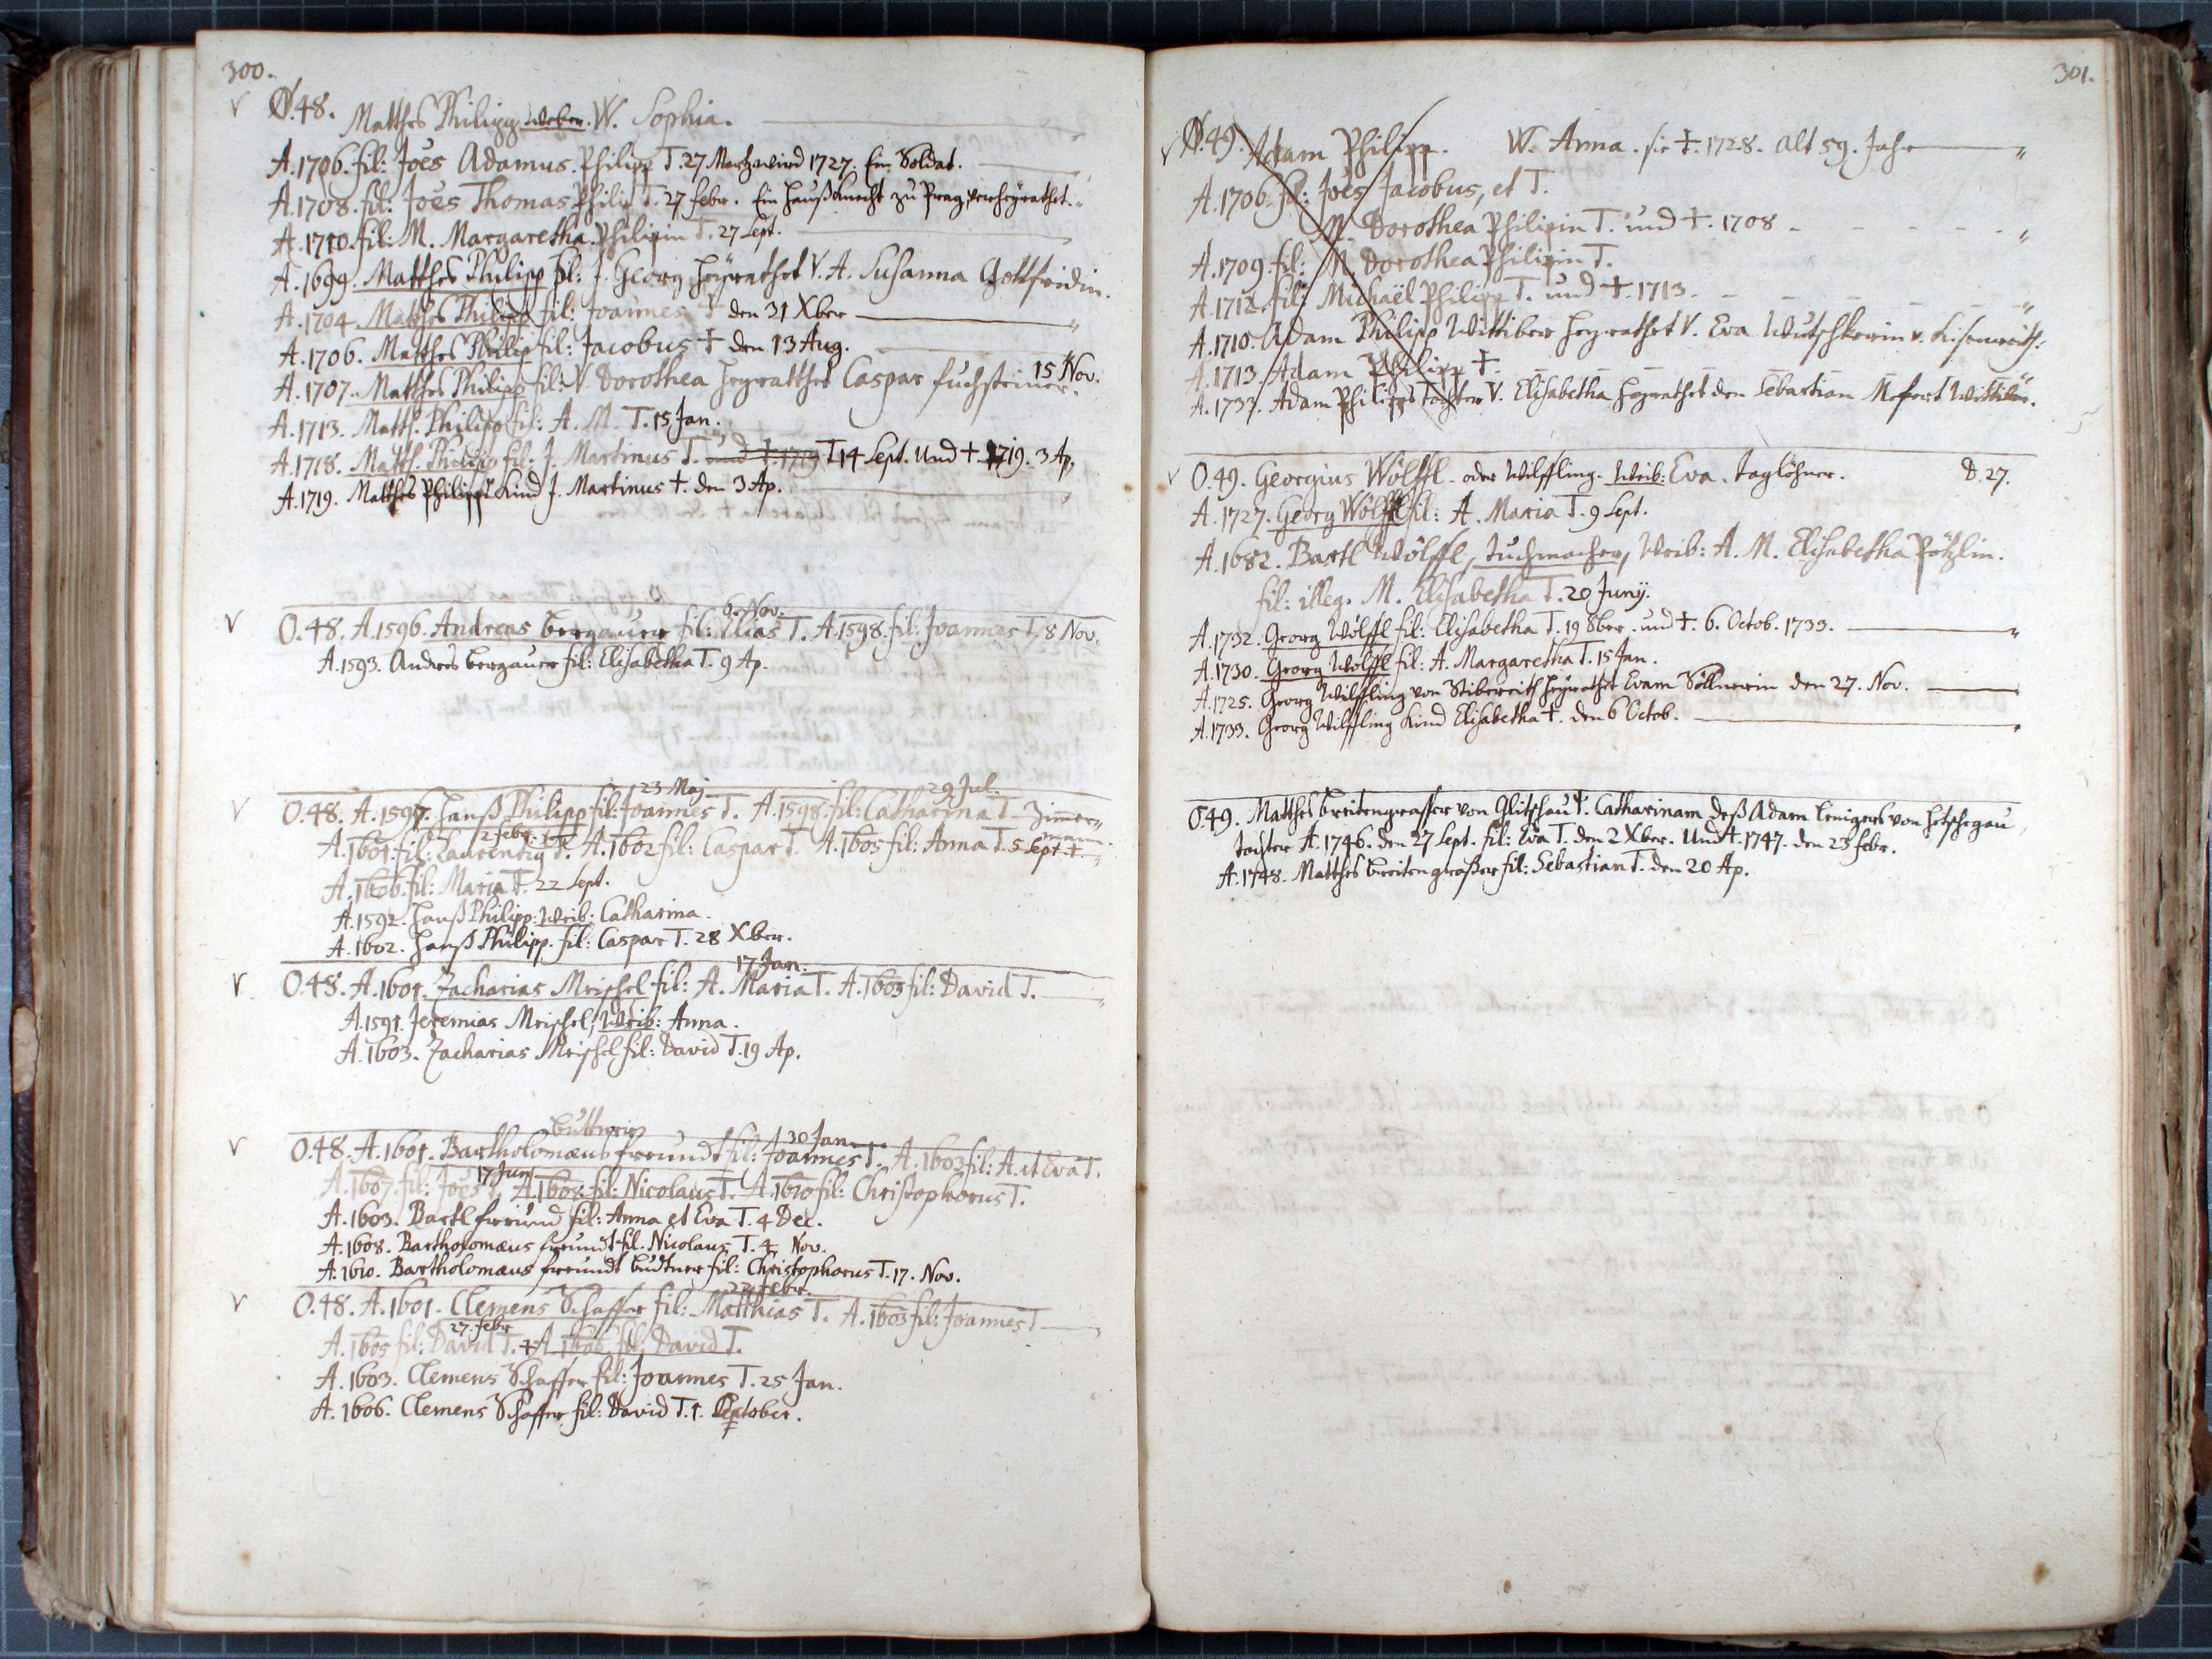 300.
O.48. Matthes Philipp. Weber. W. Sophia.
A.1706. fil: Joës Adamus. Philipp T. 27 Martz wird 1727. Ein Soldat.
A.1708. fil: Joës Thomas. Philip T. 27 febr. Ein Haußknecht zu Prag verheyrathet.
A.1710. fil: M. Margaretha. Philipin T. 27 Sept.
A.1699. Matthes Philipp fil: J. Georg heyrathet V. A. Susanna Gottfridin.
A.1704. Matthes Philipp fil: Joannes † den 31 Xber
A.1706. Matthes Philip fil: Jacobus † den 13 Aug.
A.1707. Matthes Philipp fil: V. Dorothea heyrathet Caspar fuchsteiner. 15 Nov.
A.1713. Matth. Philipp fil: A. M. T. 15 Jan.
A.1718. Matth. Philipp fil: J. Martinus T. und †. 1719 T 14 Sept. Und †. 1719. 3 Ap.
A.1719. Matthes Philipps Kind J. Martinus †. den 3 Ap.
6. Nov.
O.48. A.1596. Andreas Bergauer fil: Elias T. A.1598. fil: Joannes T. 8 Nov.
A.1593. Andres Bergauer fil: Elisabetha T. 9 Ap.
23 Maj. 29 Jul.
O.48. A.1597. Hanß Philipp fil: Joannes T. A.1598. fil: Catharina T. Zimmer-
2 febr. mann.
A.1601. fil: Laurentig T. A.1602 fil: Caspar T. A.1605 fil: Anna T. 5 Sept †.
A.1606. fil: Maria T. 22 Sept.
A.1592. Hanß Philipp: Weib: Catharina.
A.1602. Hanß Philipp. fil: Caspar T. 28 Xber.
17 Jan.
O.48. A.1601. Zacharias Meischel fil: A. Maria T. A.1603 fil: David T.
A.1591. Jeremias Meischel, Weib: Anna.
A.1603. Zacharias Meischel fil: David T. 19 Ap.
30 Jan.
O.48. A.1601. Bartholomæus freundt fil: Joannes T. A.1603 fil: A. et Eva T.
17 Jun
A.1607. fil: Joës T. A.1608. fil: Nicolaus T. A.1610 fil: Christophorus T.
A.1603. Bartl freund fil: Anna et Eva T. 4 Dec.
A.1608. Bartholomæus freundt fil. Nicolaus T. 4 Nov.
A.1610. Bartholomæus freundt Büdtner fil: Christophorus T. 17. Nov.
22 febr.
O.48. A.1601. Clemens Schaffer fil: Matthias T. A.1603 fil: Joannes T
27. febr
A.1605 fil: David T. † A.1606 fil: David T.
A.1603. Clemens Schaffer fil: Joannes T. 25 Jan.
A.1606. Clemens Schaffer fil: David T. 1. October.
301.
O.49. Adam Philipp. W. Anna. sie †. 1728. alt 59. Jahr
A.1706. fil: Joës Jacobus, et T.
M. Dorothea Philipin T. und †. 1708
A.1709. fil: M. Dorothea Philipin T.
A.1712. fil: Michaël Philipp T. und †. 1713.
A.1710. Adam Philipp Wittiber heyrathet V. Eva Wutschkerin v.
A.1713. Adam Philipp †.
A.1733. Adam Philipps Tochter V. Elisabetha heyrathet den Sebastian Mefert Wittiber.
O.49. Georgius Wölffl. oder Wilffling. Weib: Eva. Taglöhner. D.27.
A.1727. Georg Wölffl fil: A. Maria T. 9 Sept.
A.1682. Bartl Wölffl, Tuchmacher, Weib: A. M. Elisabetha Pötzlin.
fil: illeg. M. Elisabetha T. 20 Junij.
A.1732. Georg Wölffl fil: Elisabetha T. 19 8ber. und †. 6. Octob. 1733.
A.1730. Georg Wölffl fil: A. Margaretha T. 15 Jan.
A.1725. Georg Wilffling von Stibereith heyrathet Evam Söllnerin den 27. Nov.
A.1733. Georg Wilffling Kind Elisabetha †. den 6 Octob.
O.49. Matthes Breitengrasser von Glitschau Catharinam deß Adam Lenigers von Hetschegau
Tochter A.1746. den 27 Sept. fil: Eva T. den 2 Xber. Und †. 1747. den 23 febr.
A.1748. Matthes Breitengraßer fil: Sebastian T. den 20 Ap.